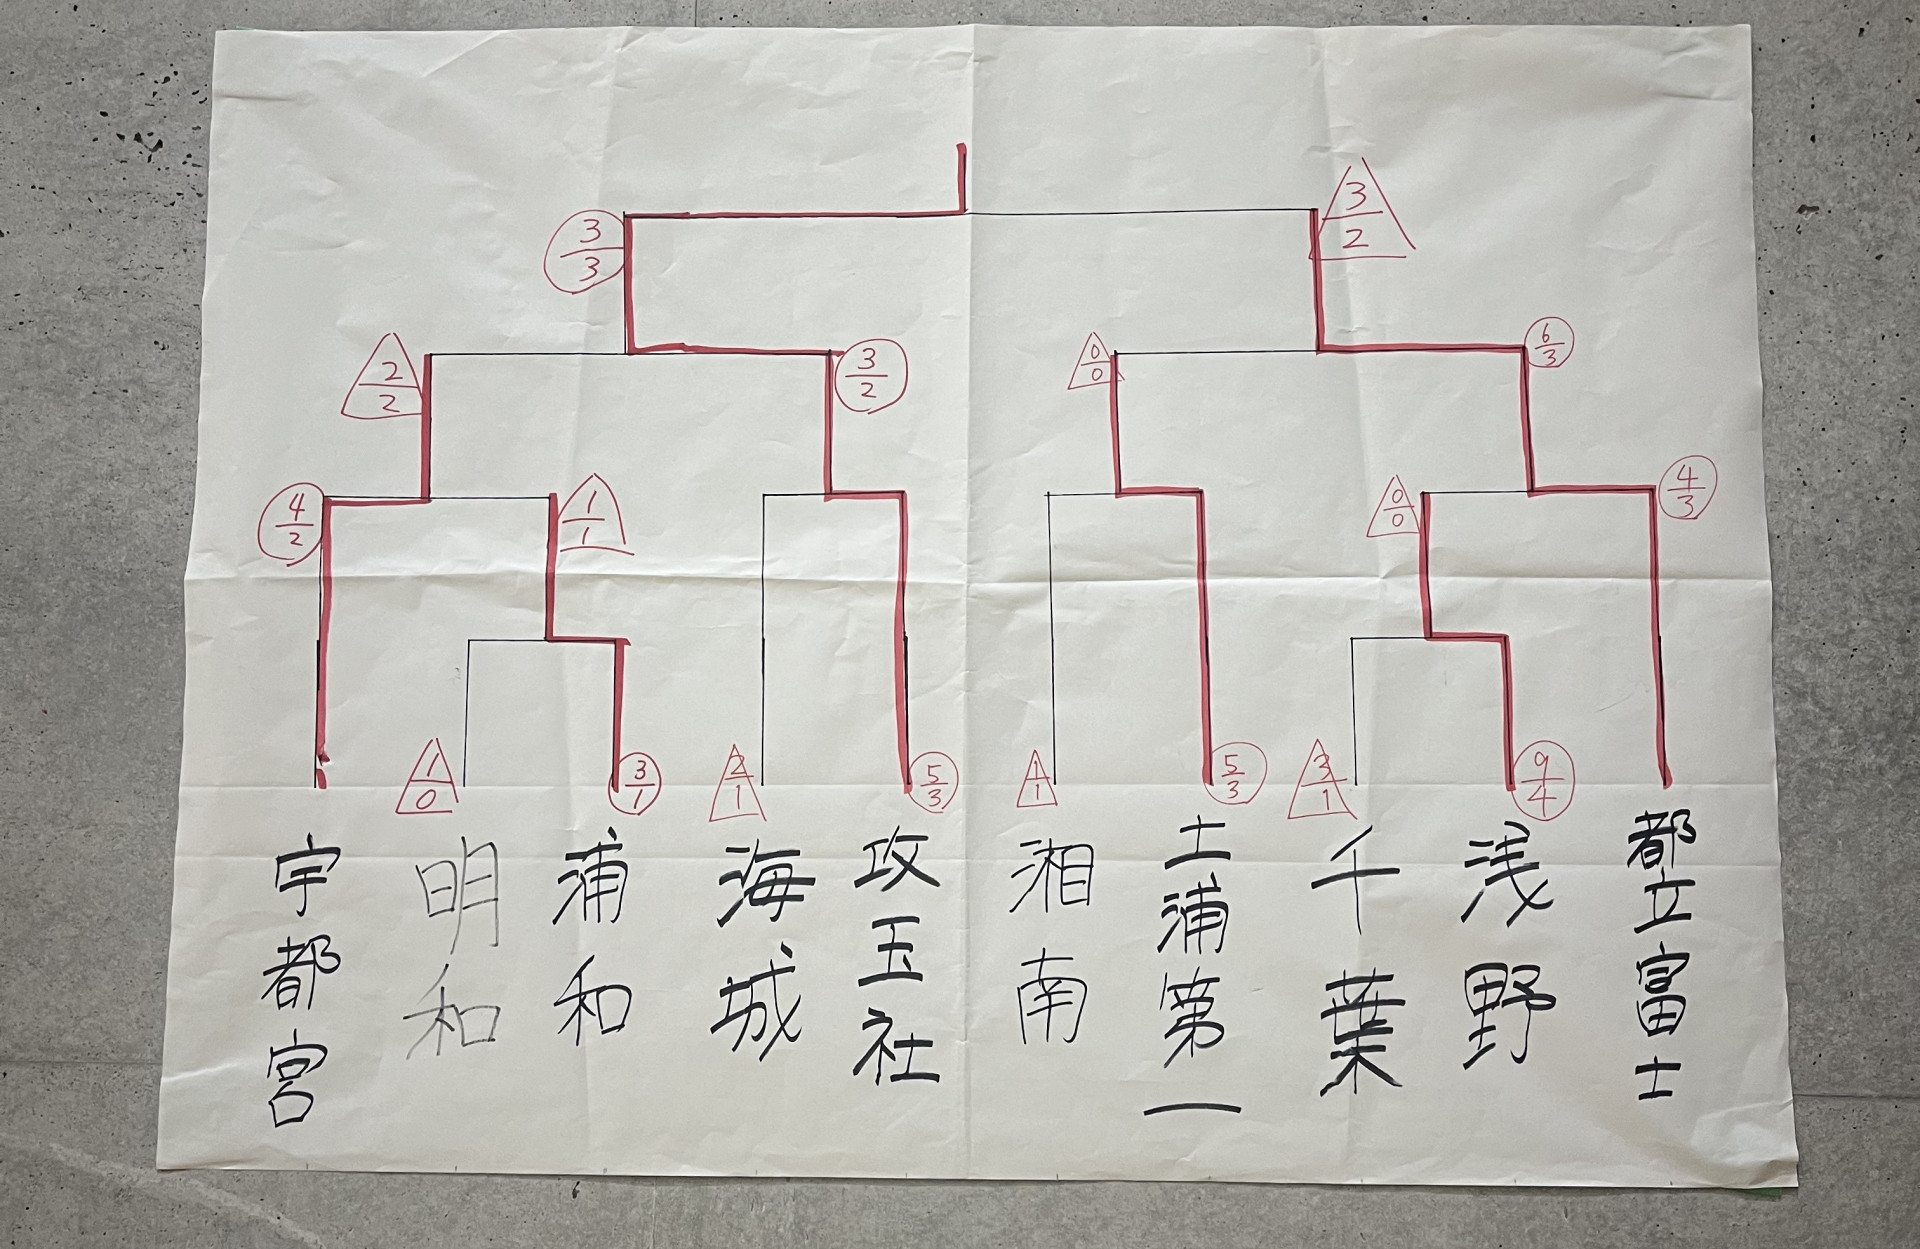 3/3
3/2
2/2
3/2
0/0
6/3
4/2
1/1
0/0
4/3
1/0
3/1
2/1
5/3
1/1
5/3
3/1
9/4
宇都宮
明和
浦和
海城
攻玉社
湘南
土浦第一
千葉
浅野
都立富士